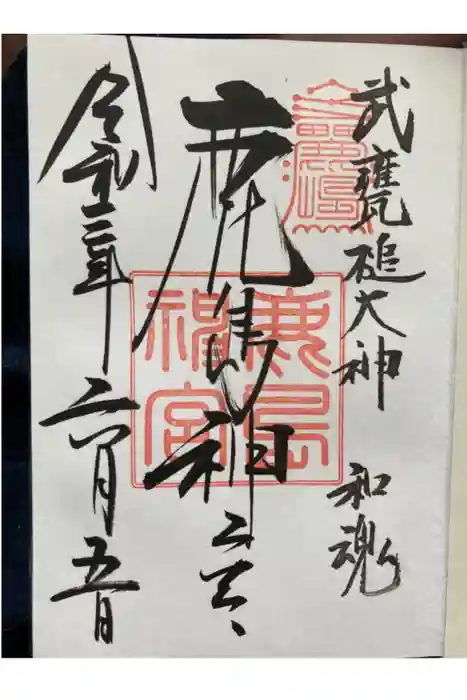 武甕槌大神 和魂
鹿島神宮
鹿島神宮
令和三年六月五日